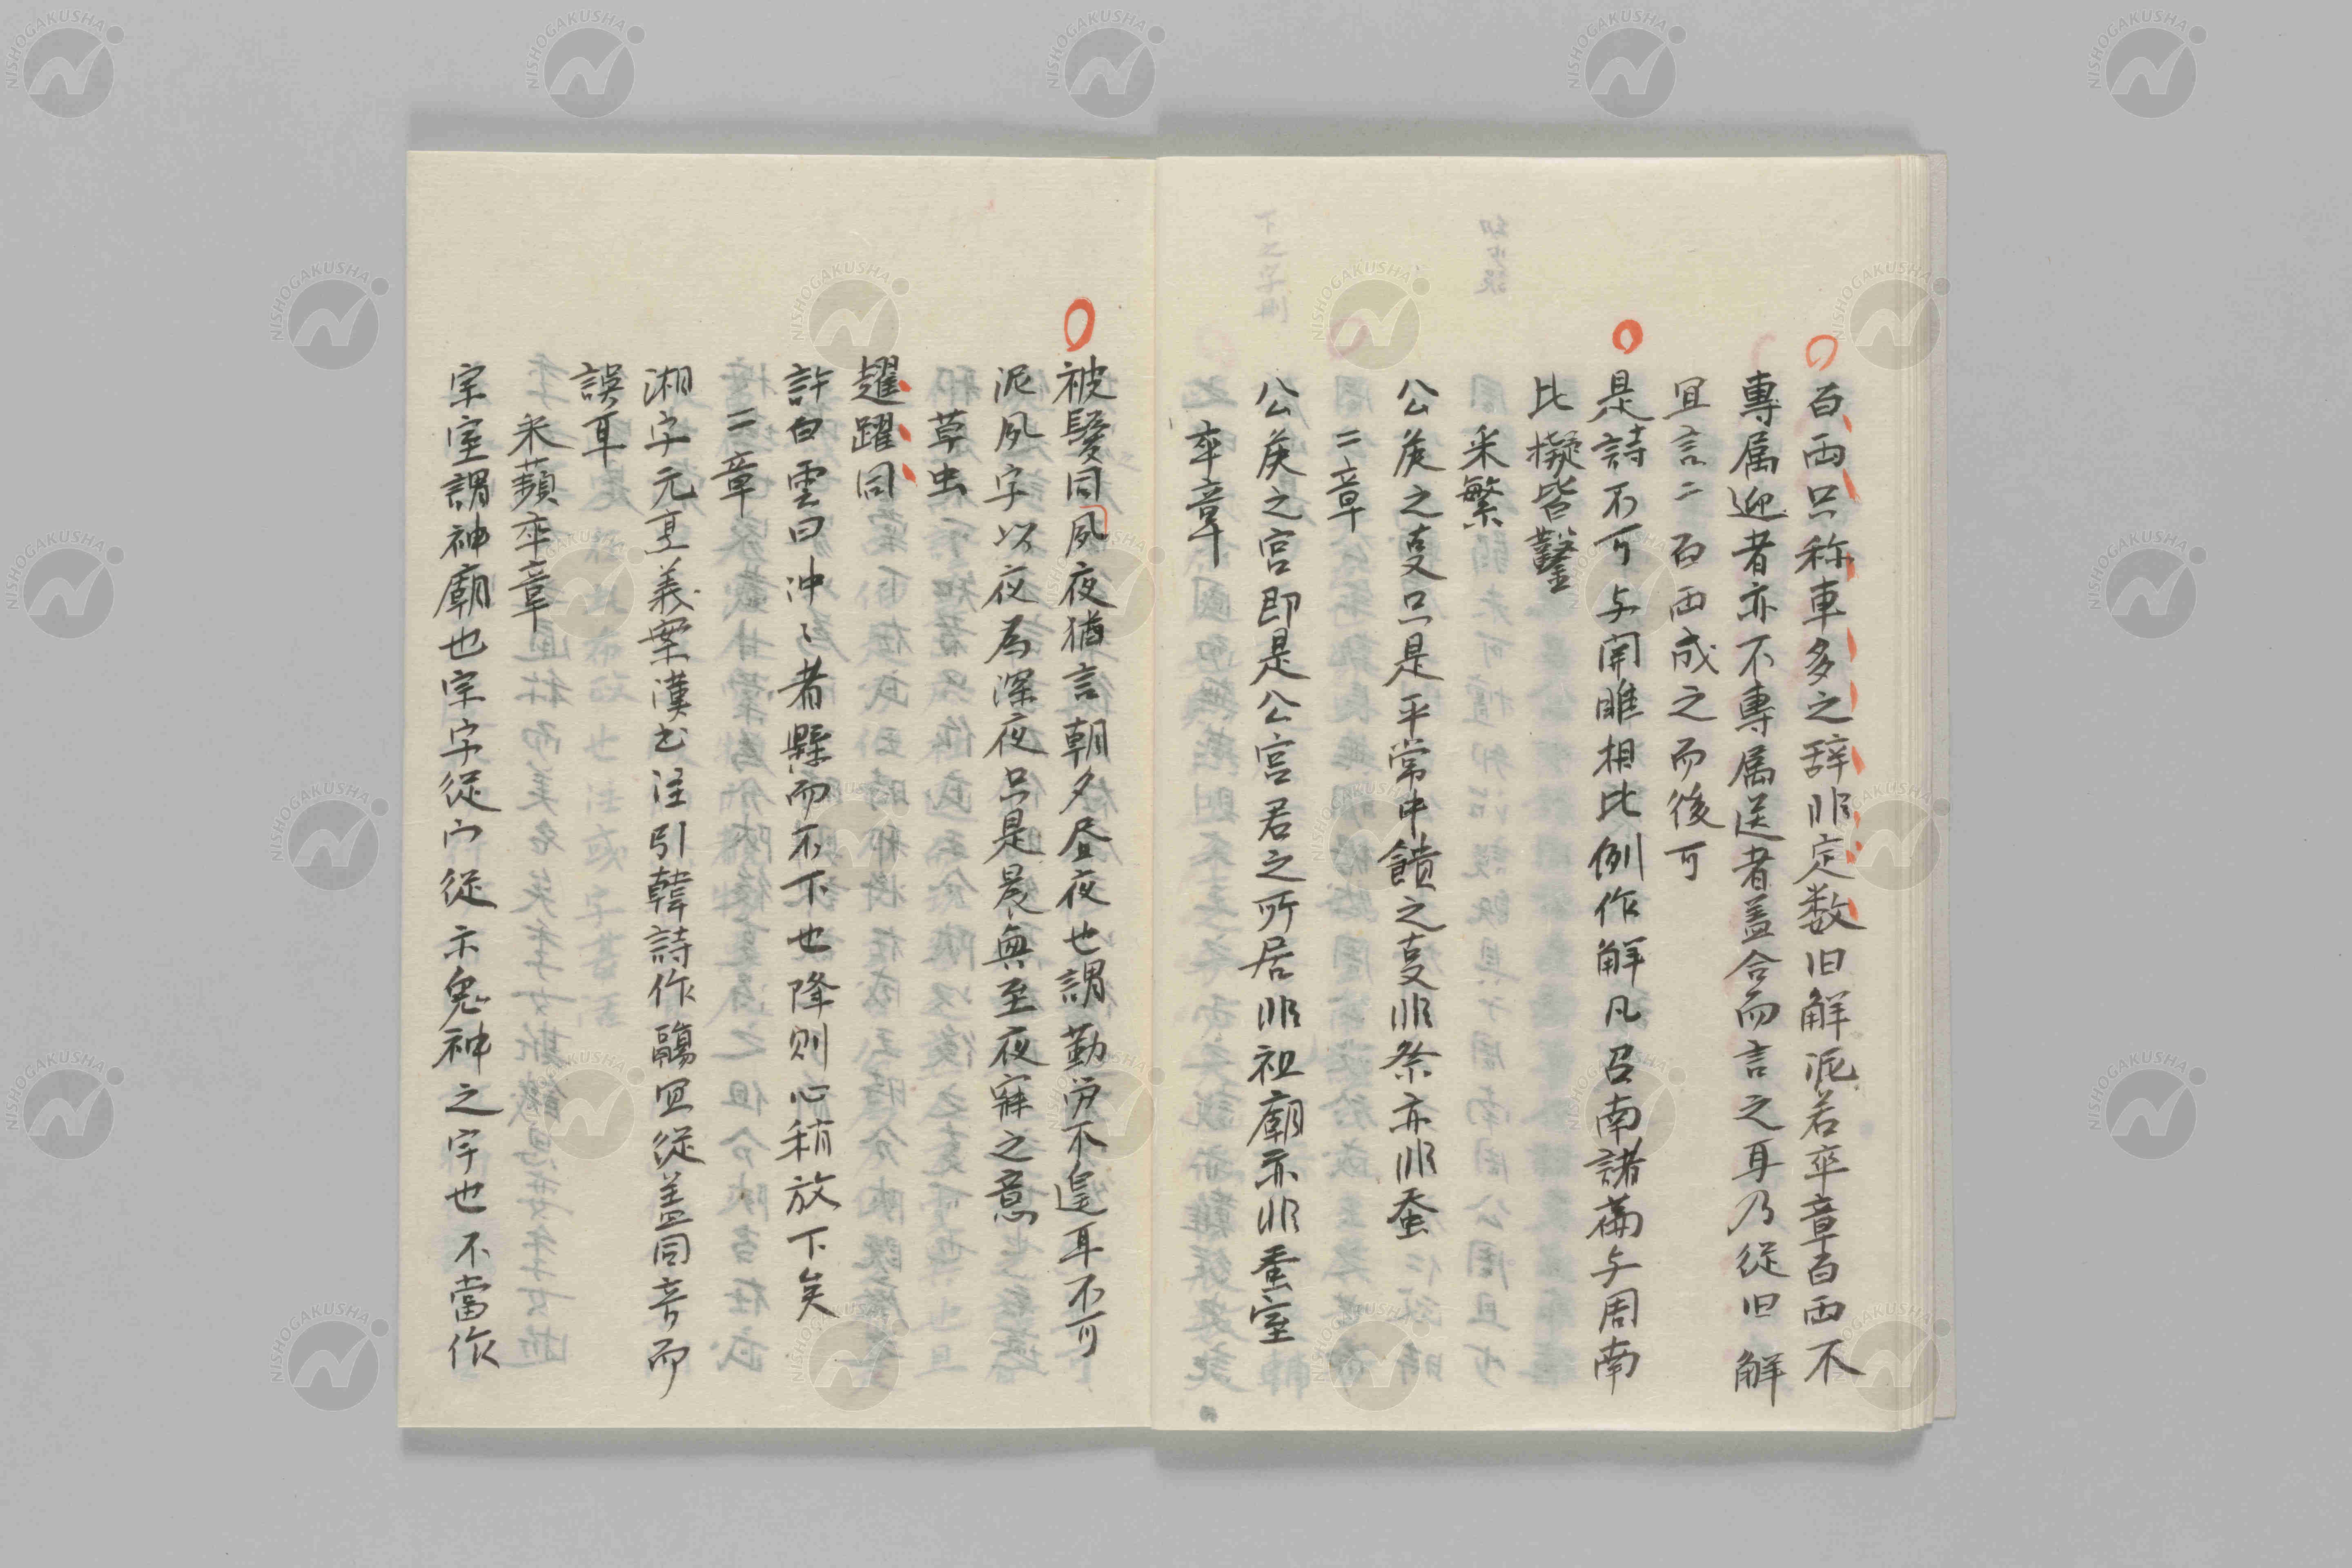 百両只称車多之辞非定数旧解泥若卒章百両不
專属迎者亦不專属送者蓋合而言之耳乃従旧解
宜言二百両成之而後可
是詩不可与関雎相比例作解凡召南諸篇与周南
比擬皆鑿
采繁
公侯之事只是平常中饋之事非祭亦非蚕
二章
公侯之宮即是公宮君之所居非祖廟亦非蚕室
卒章
被髪同夙夜猶言朝夕昼夜也謂勤労不遑耳不可
泥夙字以夜為深夜只是晨興至夜寐之意
草虫
趯躍同
許白雲曰冲〻者懸而不下也降則心稍放下矣
二章
湘字元亨義案漢書注引韓詩作鬺宜従蓋同音而
誤耳
采蘋卒章
宗室謂神廟也宗字従宀従示鬼神之宇也不當作